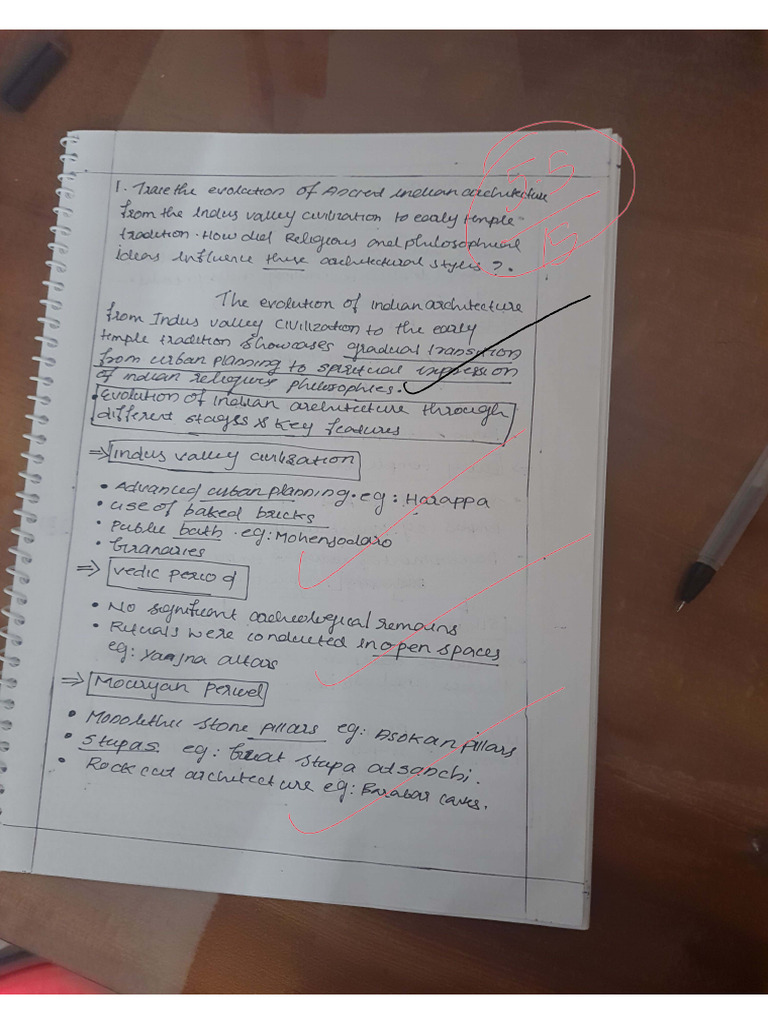 5.5
15
1. Trace the evolution of Ancred indian architecture
from the Indus valley civilization to early temple
tradition. How did Religious and philosophical
ideas influence these architectural styles ?.
The evolution of indian architecture
from Indus valley civilization to the early
temple tradition showcases gradual transition
from urban planning to spiritual expression
of indian religious philosophies.
• Evolution of indian architecture through
different stages & key features
⇒ indus valley civilization
• Advanced urban planning. eg: Harappa
• use of baked bricks
• Public bath. eg: Mohenjodaro
• Granaries
⇒ vedic period
• No significant archeological remains
• Rituals were conducted in open spaces
eg: Yanjna altars
⇒ Mouryan period
• Monolethic stone pillars eg: Asokan pillars
• Stupas eg: Great Stupa at sanchi.
• Rock cut architecture eg: Barabar caves.